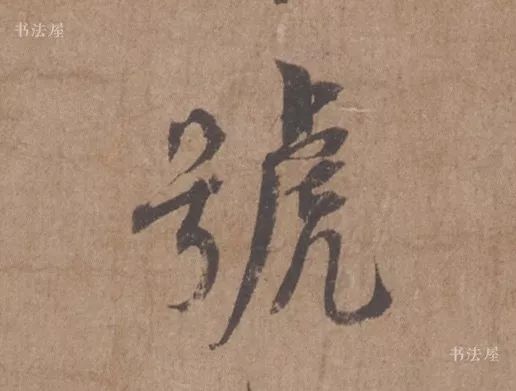 书法屋
號
书法屋